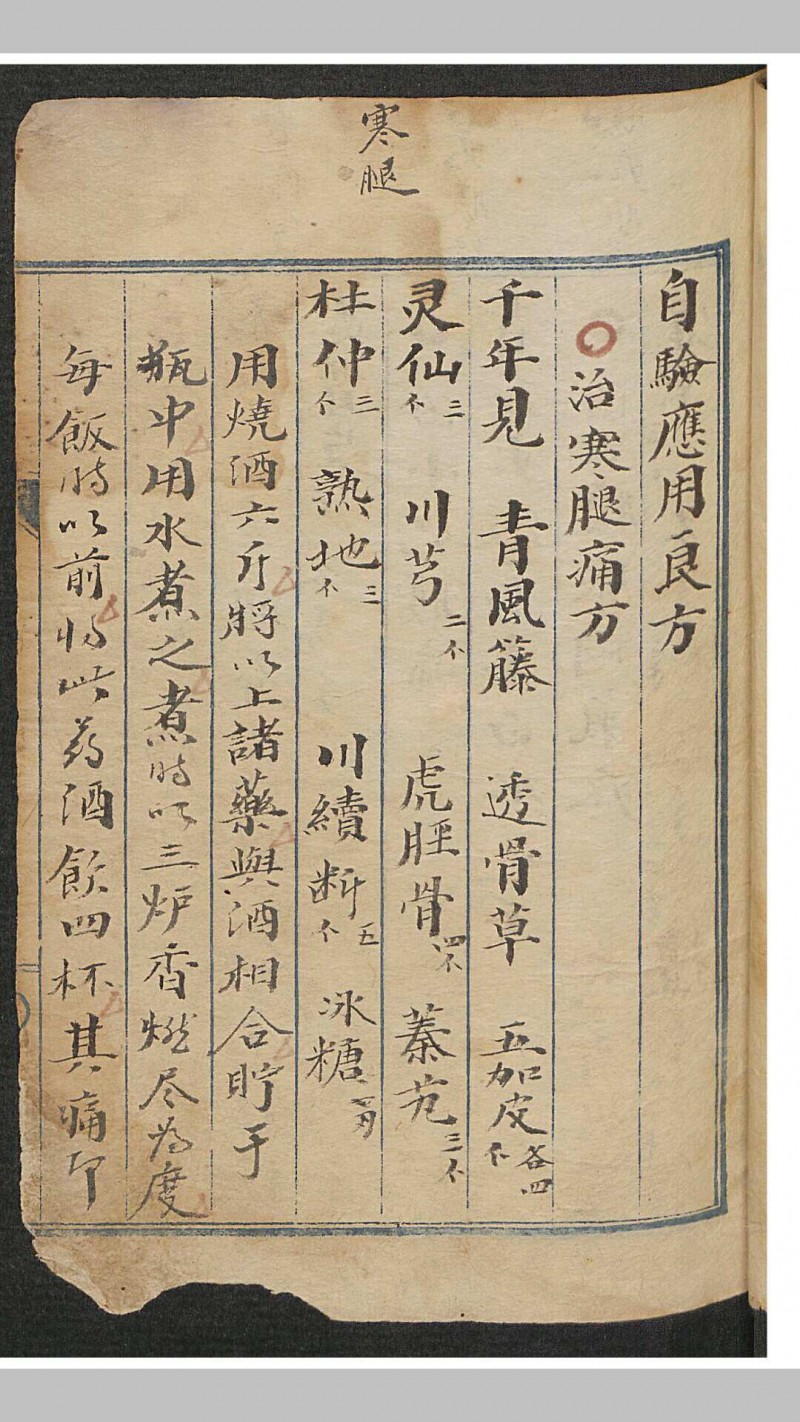 寒腿
自驗應用良方
○治寒腿痛方
千年見 青風籐 透骨草 五加皮各四不
灵仙三不 川芎二不 虎脛骨四不 蓁艽三不
杜仲三个 熟地三不 川續断五个 冰糖
用燒酒六斤將以上諸藥與酒相合貯于
瓶中用水煮之煮時以三炉香燃尽為度
每飯时以前将此药酒飲四杯其痛即